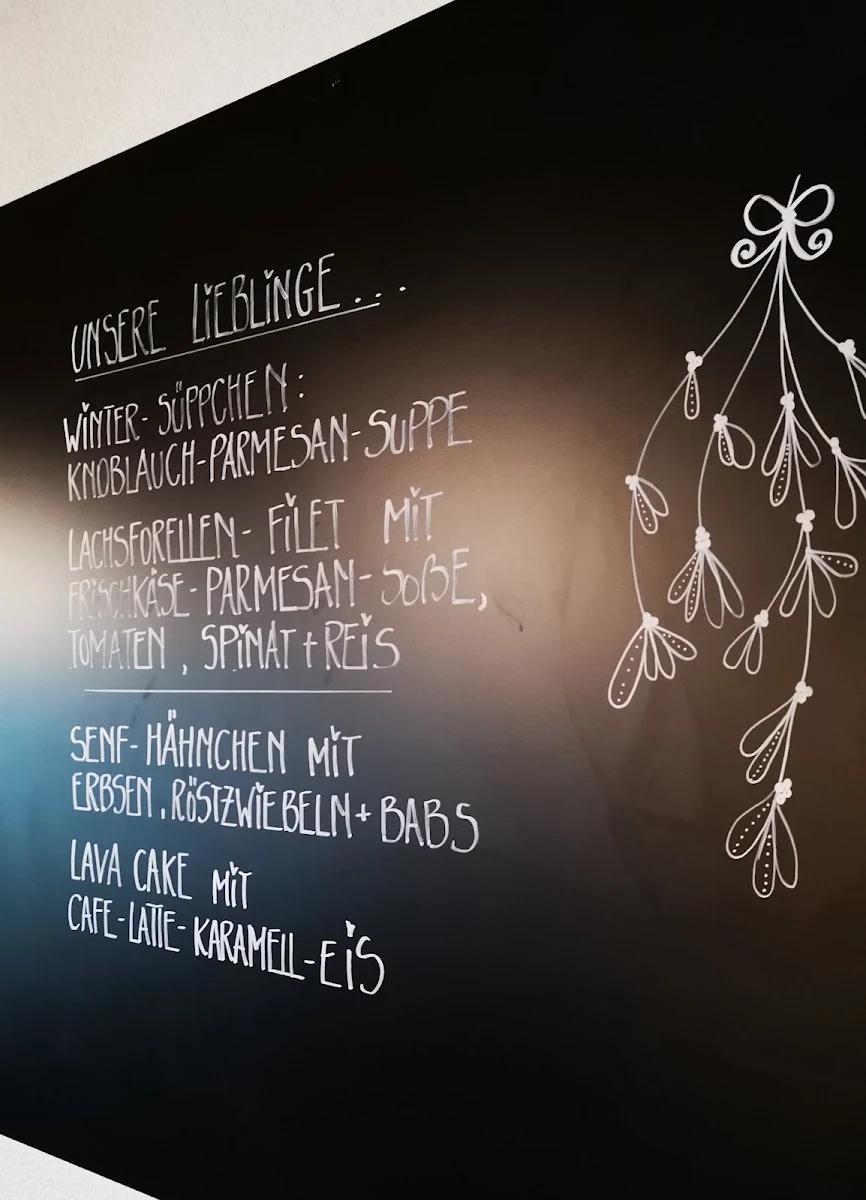 UNSERE LIEBLINGE...
WINTER-SÜPPCHEN:
KNOBLAUCH-PARMESAN-SUPPE
LACHSFORELLEN-FILET MIT
FRISCHKÄSE-PARMESAN-SOßE,
TOMATEN, SPINAT+REIS
SENF-HÄHNCHEN MIT
ERBSEN, RÖSTZWIEBELN+BABS
LAVA CAKE MIT
CAFE-LATTE-KARAMELL-EIS